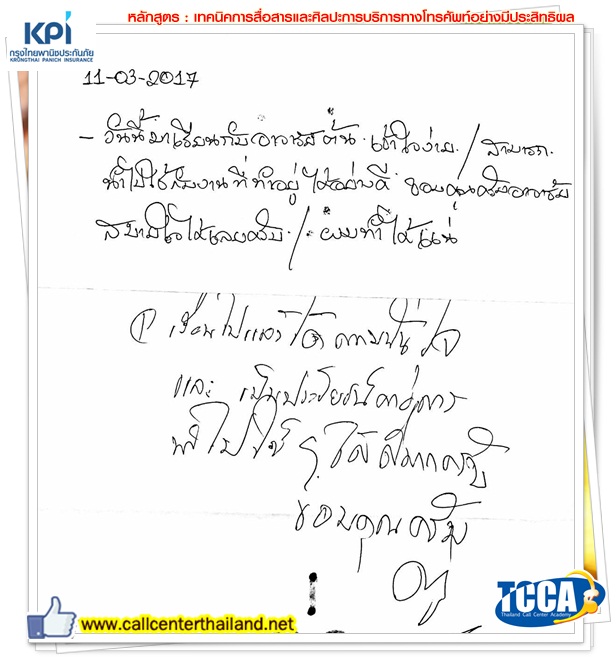 หลักสูตร : เทคนิคการสื่อสารและศิลปะการบริการทางโทรศัพท์อย่างมีประสิทธิผล
KPI
กรุงไทยพานิชประกันภัย
KRUNGTHAI PANICH INSURANCE
11-03-2017
- วันนี้มาเรียนกับอาจารย์ต้น เข้าใจง่าย / สามารถ
นำไปใช้กับงานที่ทำอยู่ได้อย่างดี ขอบคุณครับอาจารย์
สบายใจได้เลยครับ / ผมทำได้แน่
เรียนไปแล้วได้ความมั่นใจ
และ เป็นประโยชน์ต่อการ
นำไปใช้ ได้ดีมากครับ
ขอบคุณครับ
TCCA
Thailand Call Center Academy
www.callcenterthailand.net